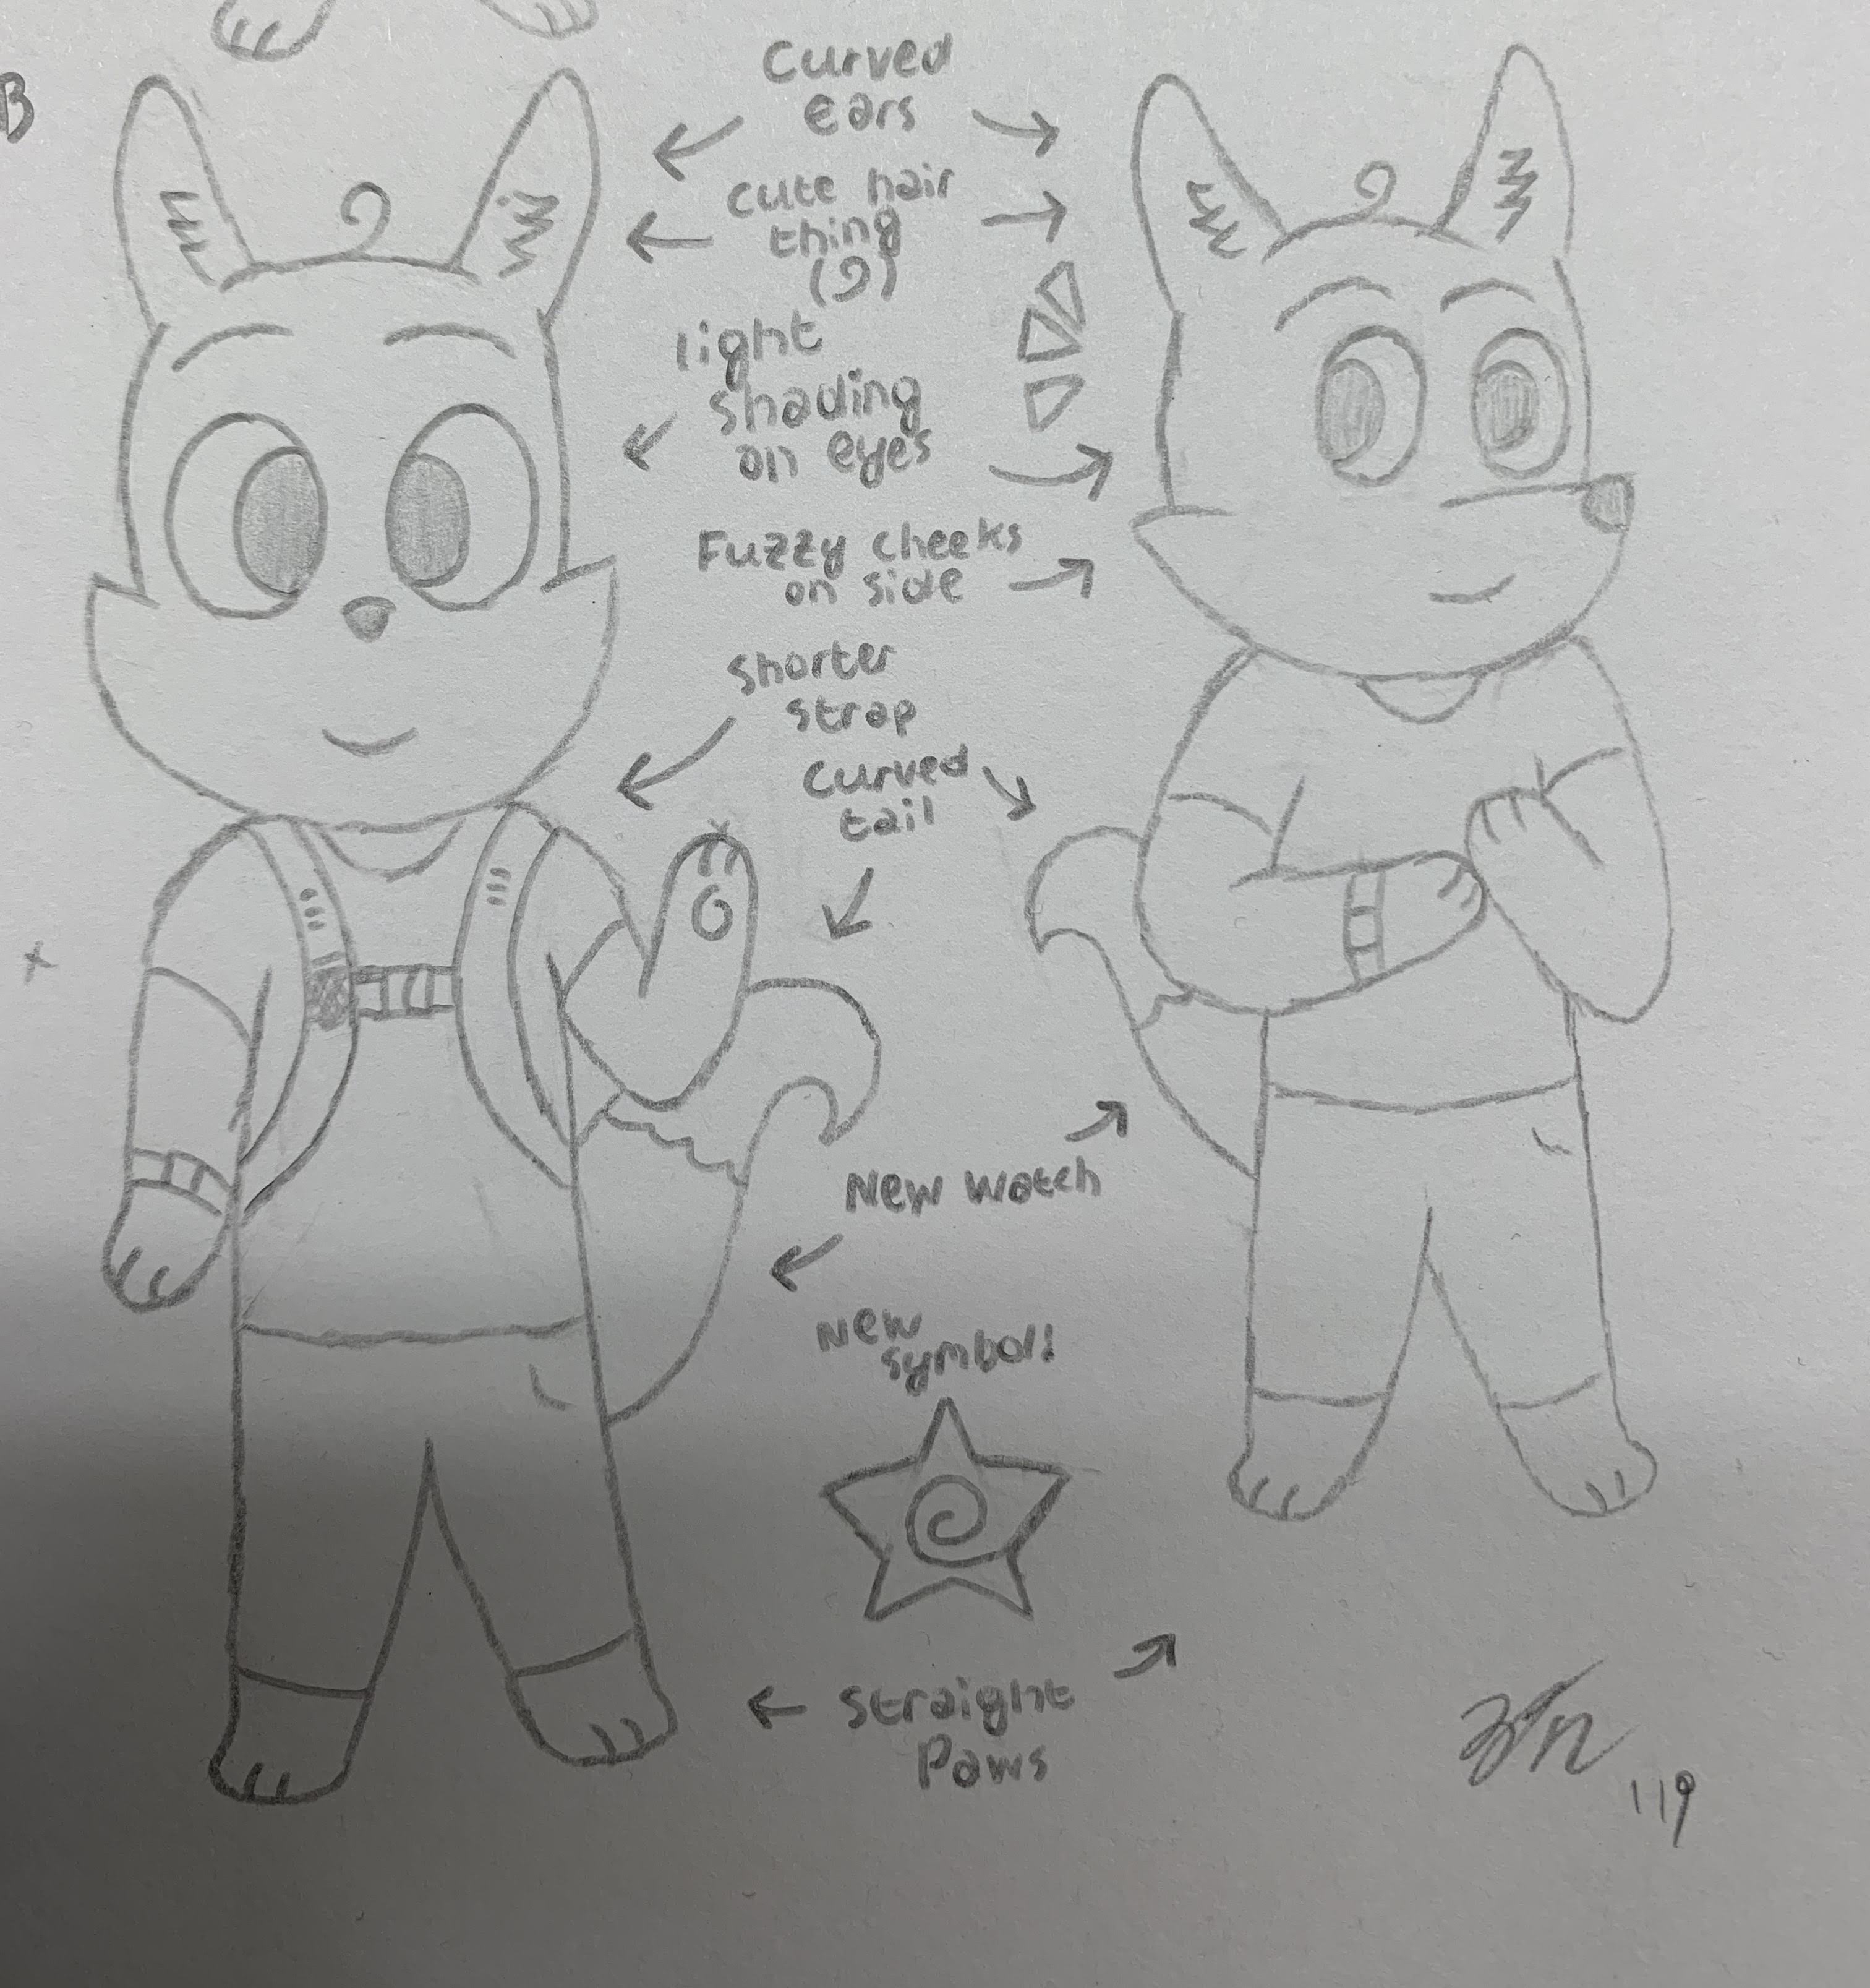 B
Curved
ears
cute hair
thing
light
shading
on eyes
Fuzzy cheeks
on side
shorter
strap
curved
tail
New watch
New
symbol!
straight
Paws
119